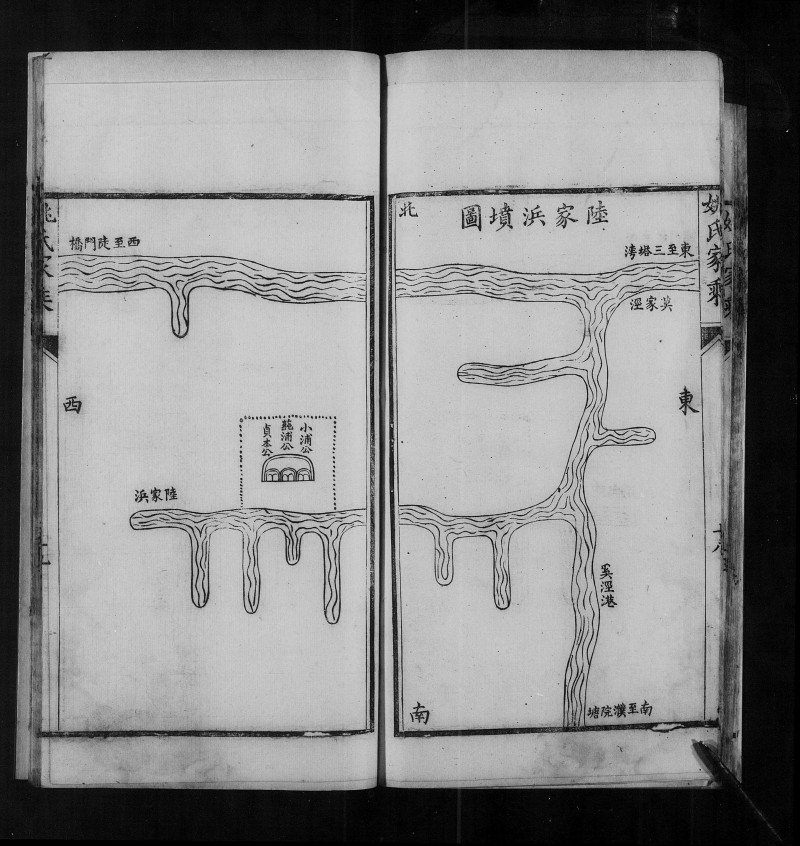 姚氏家乘
陸家浜墳圖
北
東至三塔灣
莫家涇
東
奚涇港
南至濮院塘
南
西至陡門橋
西
小浦公
蓴浦公
貞本公
陸家浜
氏家乘